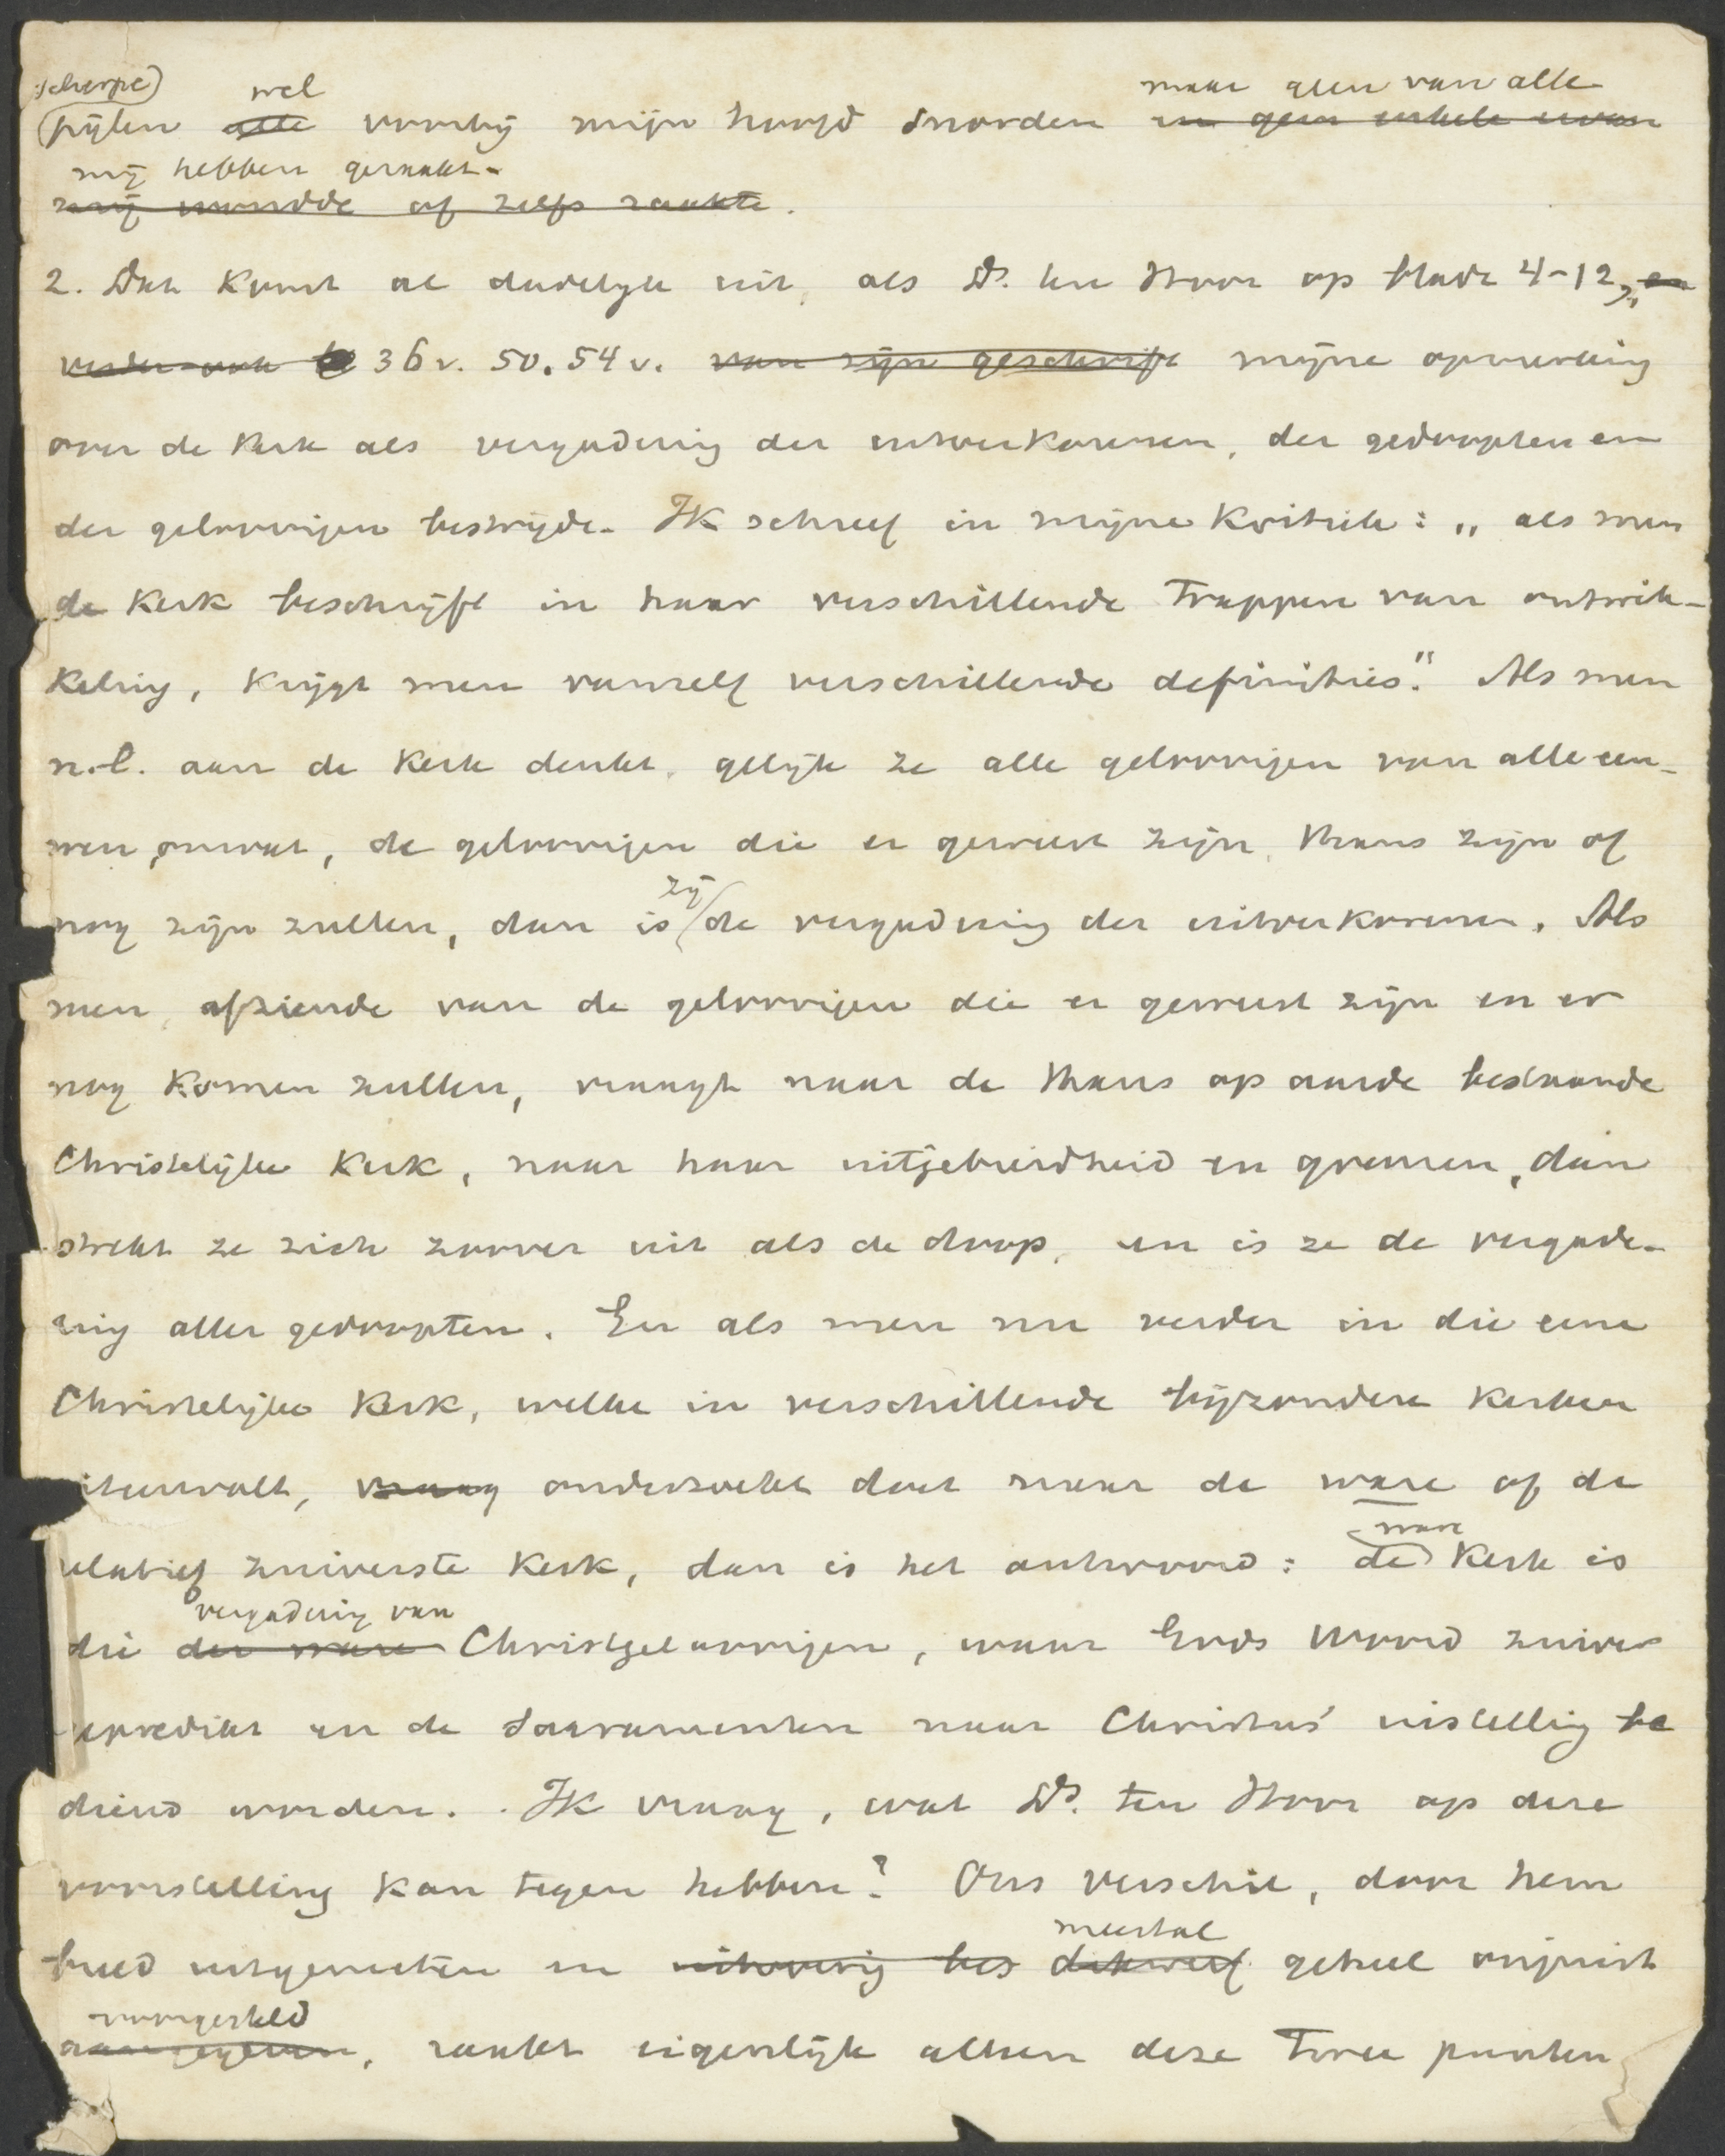 scherpe) wel maar geen van alle
(pijlen ~~alle~~ voorbij mijn hoofd snorden ~~en geen enkele ervan~~
mij hebben geraakt.
~~mij wondde of zelfs raakte~~.
2. Dat komt al duidelijk uit, als Ds. ten Hoor op bladz 4-12, ~~en~~
~~verder ook~~ 36v. 50. 54v. ~~van zijn geschrift~~ mijne opmerking
over de Kerk als vergadering der uitverkorenen, der gedoopten en
der geloovigen bestrijdt. Ik schreef in mijne Kritiek: „als men
de Kerk beschrijft in haar verschillende trappen van ontwik-
keling, krijgt men vanzelf verschillende definities." Als men
n.l. aan de Kerk denkt, gelijk ze alle geloovigen van alle eeu-
wen omvat, de geloovigen die er geweest zijn, thans zijn of
zij
nog zijn zullen, dan is de vergadering der uitverkorenen. Als
men, afziende van de geloovigen die er geweest zijn en er
nog komen zullen, vraagt naar de thans op aarde bestaande
Christelijke Kerk, naar haar uitgebreidheid en grenzen, dan
strekt ze zich zoover uit als de doop, en is ze de vergade-
ring aller gedoopten. En als men nu verder in die eene
Christelijke Kerk, welke in verschillende bijzondere Kerken
uiteenvalt, ~~vraag~~ onderzoekt doet naar de ware of de
ware
relatief zuiverste Kerk, dan is het antwoord: de Kerk is
vergadering van
die ~~der ware~~ Christgeloovigen, waar Gods Woord zuiver
gepredikt en de Sacramenten naar Christus' instelling be
diend worden. Ik vraag, wat Ds. ten Hoor op deze
voorstelling kan tegen hebben? Ons verschil, door hem
meestal
breed uitgemeten en ~~dikwerf~~ geheel onjuist
voorgesteld
~~aangegeven~~, raakt eigenlijk alleen deze twee punten